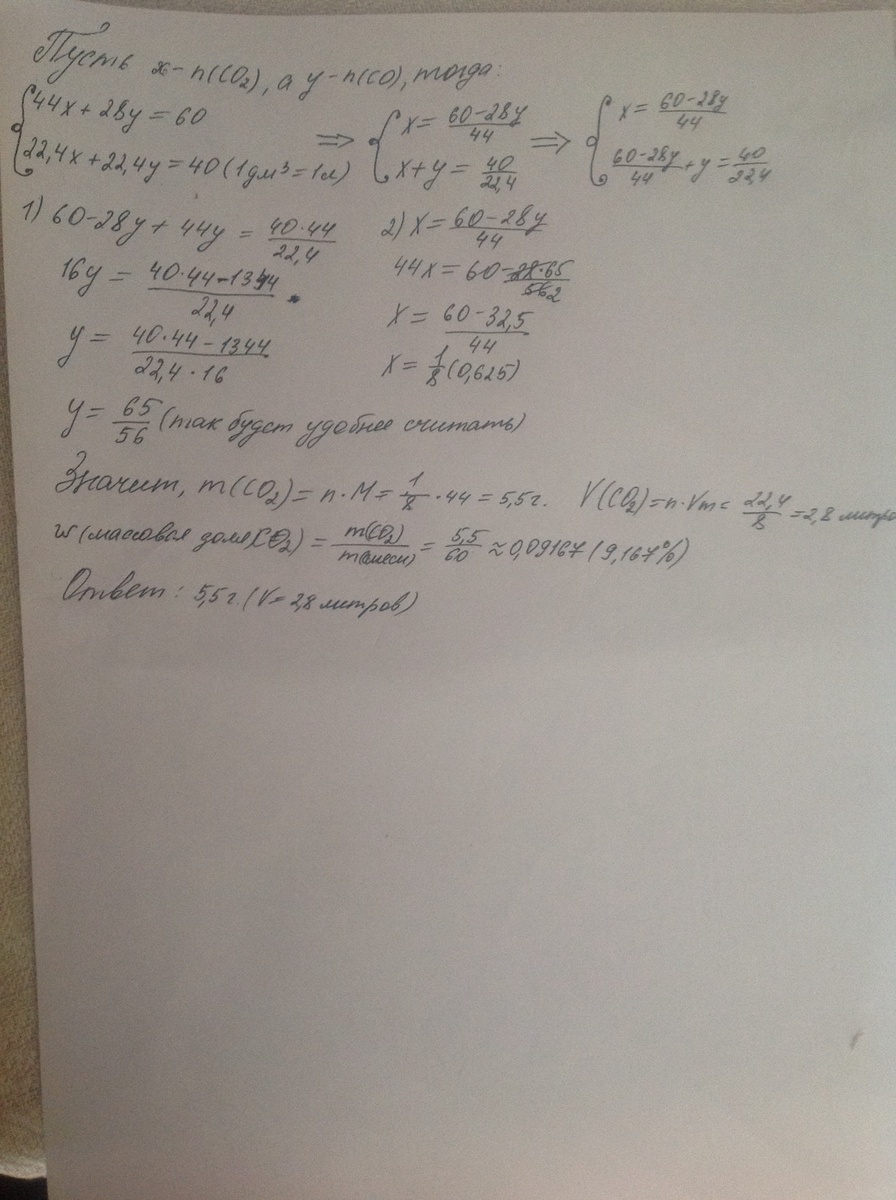 Пусть x – n(CO₂), а y – n(CO), тогда:
{44x + 28y = 60
22,4x + 22,4y = 40 (1дм³ = 1л) ⇒ {x = (60-28y)/44
x + y = 40/22,4 ⇒ {x = (60-28y)/44
(60-28y)/44 + y = 40/22,4
1) 60-28y + 44y = (40·44)/22,4
16y = (40·44-1344)/22,4
y = (40·44-1344)/(22,4·16)
y = 65/56 (так будет удобнее считать)
2) x = (60-28y)/44
44x = 60 - (28·65)/(56 2)
x = (60-32,5)/44
x = 1/8 (0,625)
Значит, m(CO₂) = n·M = 1/8 · 44 = 5,5г. V(CO₂) = n·Vm = 22,4/8 = 2,8 литро
w (массовая доля CO₂) = m(CO₂)/m(смеси) = 5,5/60 ≈ 0,09167 (9,167%)
Ответ: 5,5г. (V = 2,8 литров)